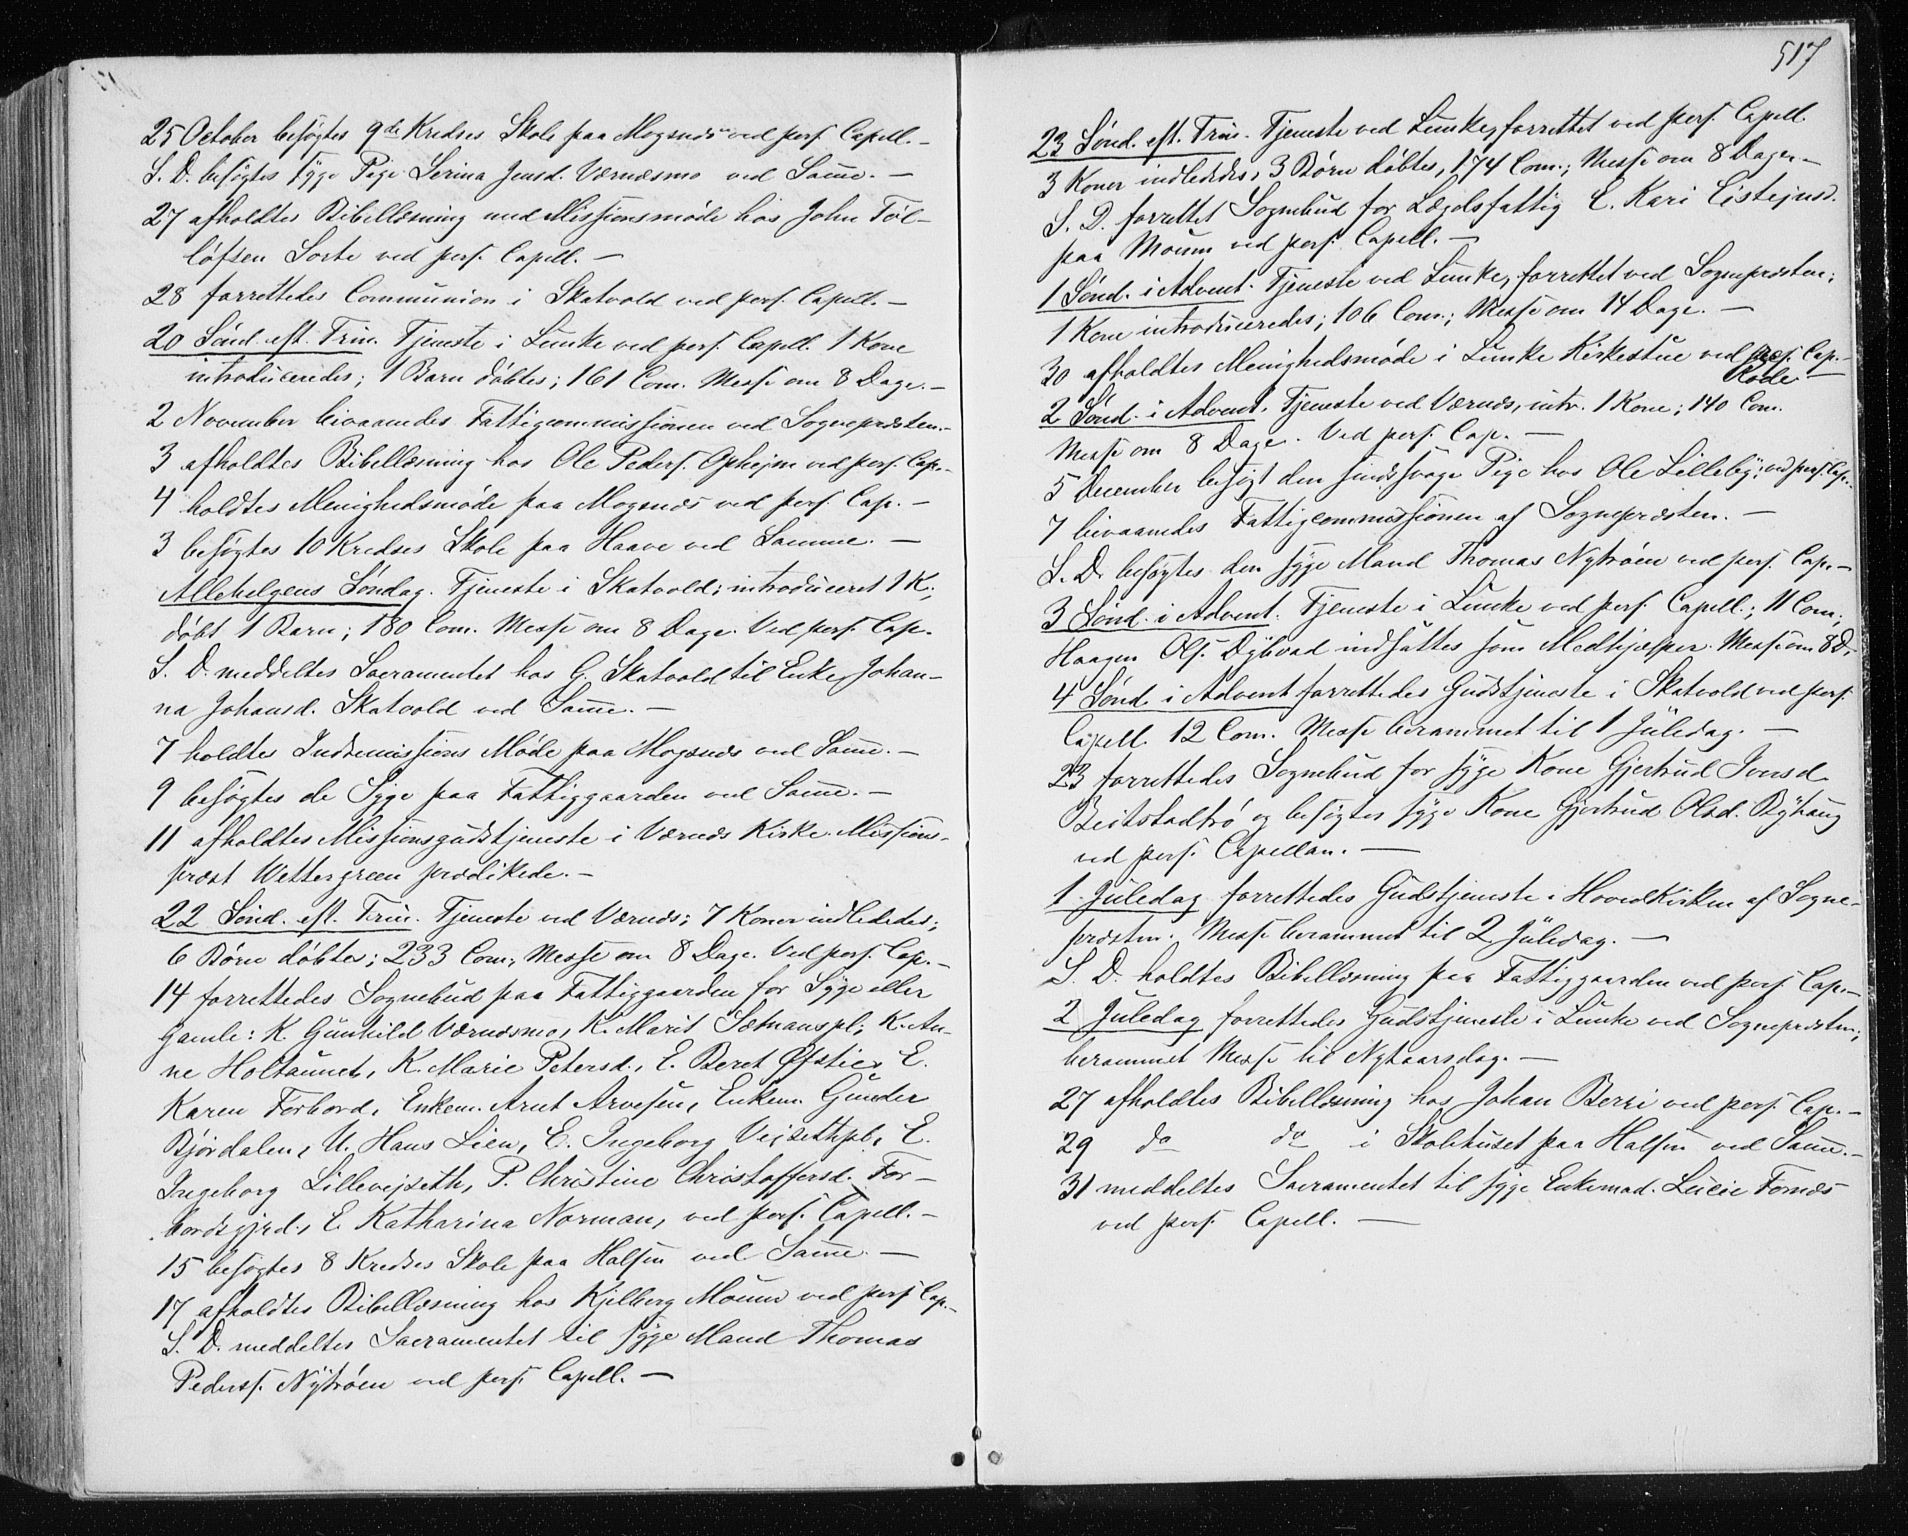 25 October besögtes 9de Kredses Skole paa Mogsnæs ved pers. Capell. —
S. D. besögtes syge Pige Serina Jensd. Værnæsmo ved Samme. —
27 afholdtes Bibellæsning med Missionsmöde hos John Töl-
löfsen Sorte ved pers. Capell. —
28 forrettedes Communion i Skatvold ved pers. Capell. —
20 Sönd. eft. Trin. Tjeneste i Lunke ved pers. Capell. 1 Kone
introduceredes; 1 Barn döbtes; 161 Com. Messe om 8 Dage. —
2 November bivaanedes Fattigcommissionen ved Sognepræsten. —
3 afholdtes Bibellæsning hos Ole Peders. Ophejm ved pers. Cap. —
4 holdtes Menighedsmöde paa Mogsnæs ved pers. Cap. —
3 besögtes 10 Kredses Skole paa Haave ved Samme. —
Allehelgens Söndag. Tjeneste i Skatvold; introduceret 1 K.;
döbt 1 Barn; 180 Com. Messe om 8 Dage. Ved pers. Cap.
S. D. meddeltes Sacramentet hos G. Skatvold til Enke Johan-
na Johansd. Skatvold ved Samme. —
7 holdtes Indremissions Möde paa Mogsnæs ved Samme. —
9 besögtes de Syge paa Fattiggaarden ved Samme. —
11 afholdtes Missionsgudstjeneste i Værnæs Kirke. Missions-
præst Wettergreen prædikede. —
22 Sönd. eft. Trin. Tjeneste ved Værnæs; 7 Koner indlededes;
6 Börn döbtes; 233 Com; Messe om 8 Dage. Ved pers. Cap. —
14 forrettedes Sognebud paa Fattiggaarden for Syge eller
gamle: K. Gunhild Værnæsmo, K. Marit Sætnanspl, K. An-
ne Holtaunet, K. Marie Petersd., E. Beret Öfstie, E.
Karen Forbord, Enkem. Arnt Arvesen, Enkem. Gunder
Björdalen, U. Hans Lien, E. Ingeborg Vejsethpl, E.
Ingeborg Lillevejseth, P. Christine Christoffersd. For-
bordsgjrd., E. Katharina Norman, ved pers. Capell. —
15 besögtes 8 Kredses Skole paa Halsen ved Samme. —
17 afholdtes Bibellæsning hos Kjelberg Moum ved pers. Cap. —
S. D. meddeltes Sacramentet til syge Mand Thomas
Peders. Nytröen ved pers. Capell. —
517
23 Sönd. eft. Trin. Tjeneste ved Lunke, forrettet ved pers. Capell.
3 Koner indlededes, 3 Börn döbtes, 174 Com.; Messe om 8 Dage. —
S. D. forrettet Sognebud for Lægdsfattig E. Kari
paa Moum ved pers. Capell. —
1 Sönd. i Advent. Tjeneste ved Lunke, forrettet ved Sognepræsten;
1 Kone introduceredes; 106 Com.; Messe om 14 Dage. —
30 afholdtes Menighedsmöde i Lunke Kirkestue ved pers. Cap. —
Rode
2 Sönd. i Advent. Tjeneste ved Værnæs, intr. 1 Kone; 140 Com.
Messe om 8 Dage. Ved pers. Cap. —
5 December besögt den sindssvage Pige hos Ole Lilleby; ved pers. Cap. —
7 bivaanedes Fattigcommissionen af Sognepræsten. —
S. D. besögtes den syge Mand Thomas Nytröen ved pers. Cap. —
3 Sönd. i Advent. Tjeneste i Lunke ved pers. Capell.; 11 Com;
Haagen Ols. Dybvad indsattes som Medhjælper. Messe om 8 D.
4 Sönd. i Advent forrettedes Gudstjeneste i Skatvold ved pers.
Capell. 12 Com. Messe berammet til 1 Juledag. —
23 forrettedes Sognebud for syge Kone Gjertrud Iversd.
Beitstadtrö og besögtes syge Kone Gjertrud Olsd. Byhaug
ved pers. Capellan. —
1 Juledag forrettedes Gudstjeneste i Hovedkirken af Sogne-
præsten. Messe berammet til 2 Juledag. —
S. D. holdtes Bibellæsning paa Fattiggaarden ved pers. Cap. —
2 Juledag forrettedes Gudstjeneste i Lunke ved Sognepræsten;
berammet Messe til Nytaarsdag. —
27 afholdtes Bibellæsning hos Johan Berri ved pers. Cap. —
29 do do i Skolehuset paa Halsen ved Samme. —
31 meddeltes Sacramentet til syge Enkemad. Lucie Fornæs
ved pers. Capell. —